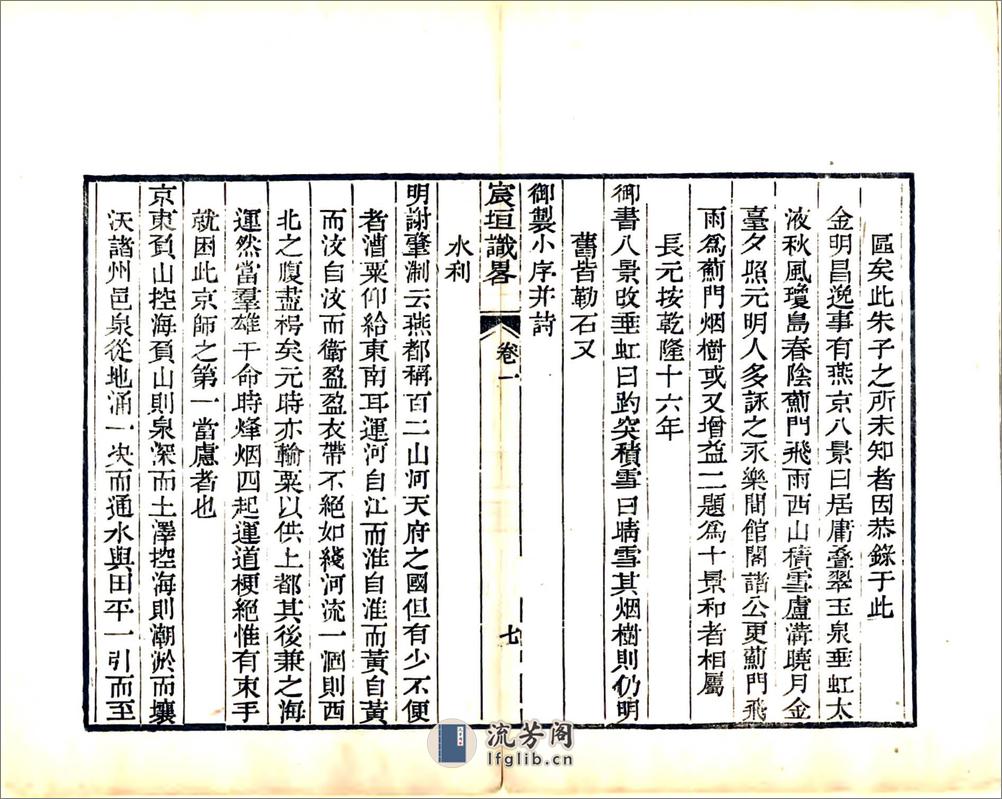 區矣此朱子之所未知者因恭錄于此
金明昌逸事有燕京八景曰居庸叠翠玉泉垂虹太
液秋風瓊島春陰薊門飛雨西山積雪盧溝曉月金
臺夕照元明人多詠之永樂間館閣諸公更薊門飛
雨爲薊門烟樹或又增益二題爲十景和者相屬
長元按乾隆十六年
御書八景改垂虹曰趵突積雪曰晴雪其烟樹則仍明
舊皆勒石又
御製小序并詩
宸垣識畧 卷一 七
水利
明謝肇淛云燕都稱百二山河天府之國但有少不便
者漕粟仰給東南耳運河自江而淮自淮而黃自黃
而汶自汶而衛盈盈衣帶不絕如綫河流一涸則西
北之腹盡枵矣元時亦輸粟以供上都其後兼之海
運然當羣雄干命時烽烟四起運道梗絕惟有束手
就困此京師之第一當慮者也
京東負山控海負山則泉深而土澤控海則潮淤而壤
沃諸州邑泉從地涌一决而通水與田平一引而至
流芳阁
lfglib.cn